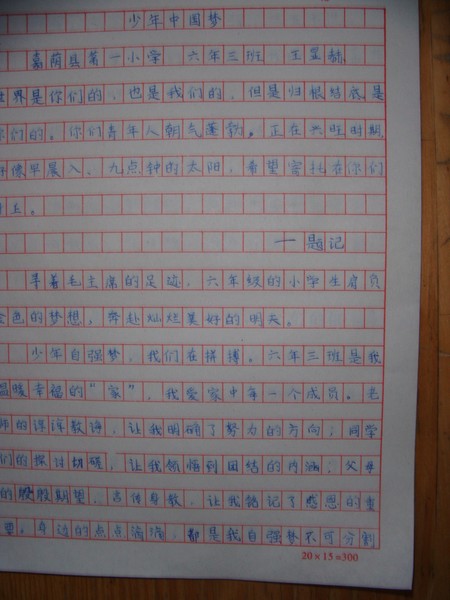 少年中国梦
嘉荫县第一小学 六年三班 王
世界是你们的，也是我们的，但是归根结底是
你们的。你们青年人朝气蓬勃，正在兴旺时期
好像早晨八、九点钟的太阳，希望寄托在你们
身上。
——题记
寻着毛主席的足迹，六年级的小学生肩负
金色的梦想，奔赴灿烂美好的明天。
少年自强梦，我们在拼搏。六年三班是我
温暖幸福的“家”，我爱家中每一个成员。老
师的谆谆教诲，让我明确了努力的方向；同学
们的探讨切磋，让我领悟到团结的内涵；父母
的殷殷期望，言传身教，让我铭记了感恩的重
要。身边的点点滴滴，都是我自强梦不可分割
20×15=300